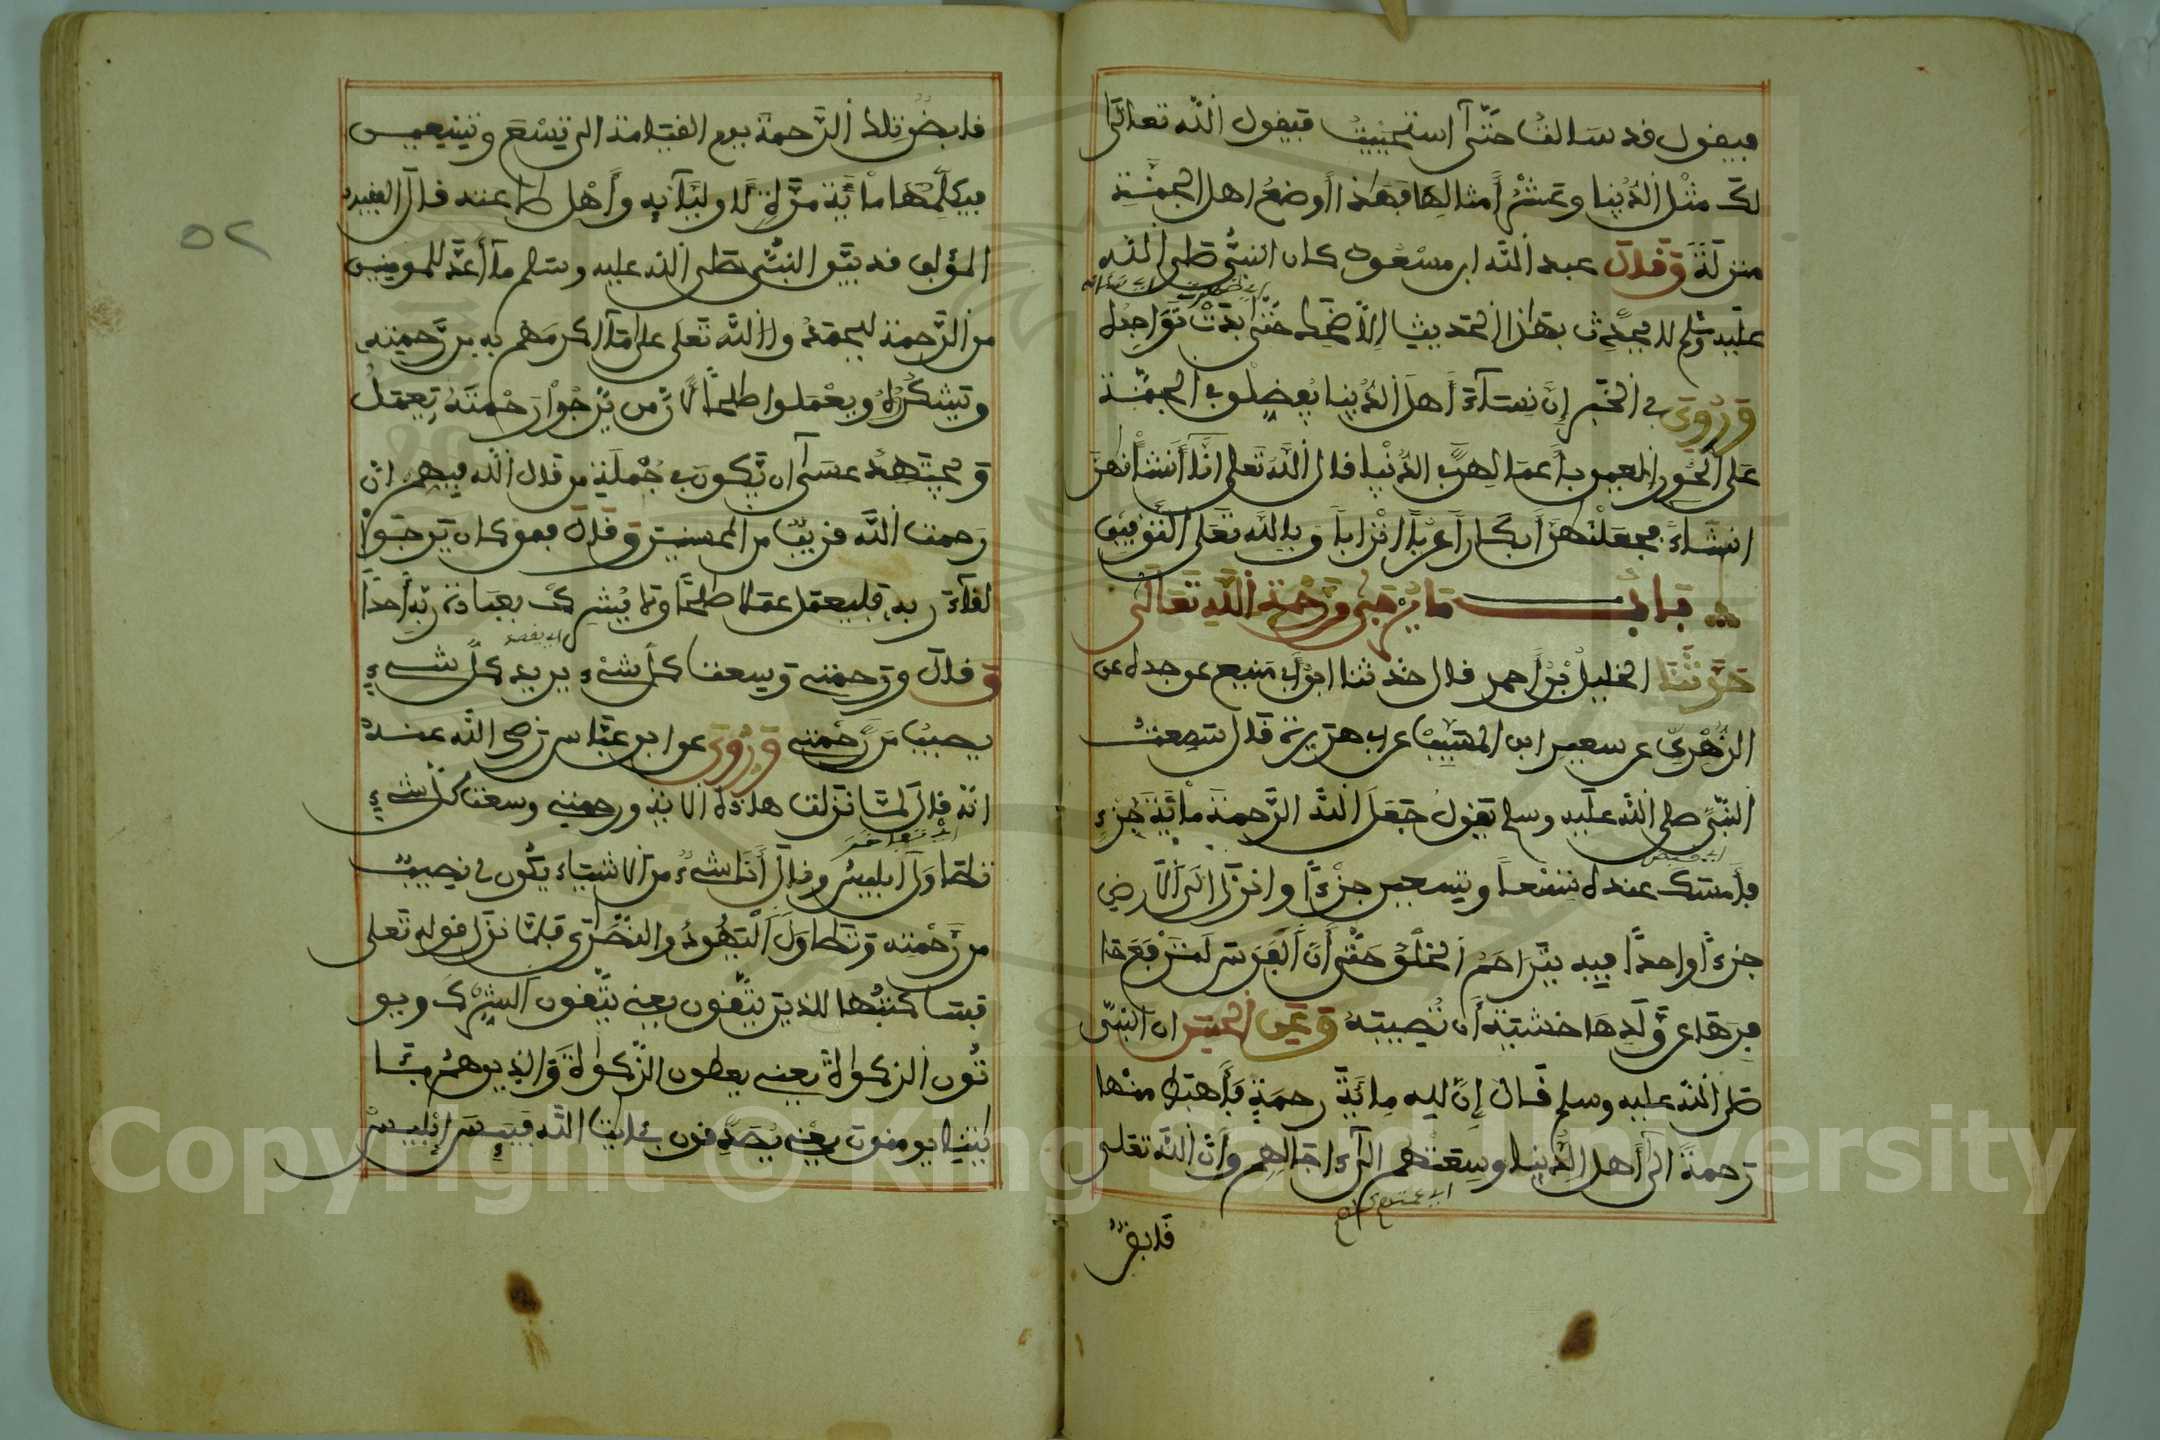 فيقول قد سالت حتى استحييت فيقول الله تعالى
لك مثل الدنيا وعشر أمثالها فهذا أوضع اهل الجنة
منزلة وقال عبد الله ابن مسعود كان النبي صلى الله
عليه وسلم لا يحدث بهذا الحديث إلا ضحك حتى بدت نواجده
وروي في الخبر إن نساء أهل الدنيا يفضلون في الجنة
على الحور العين بأعمالهن في الدنيا قال الله تعلى انا أنشأنهن
انشاء فجعلنهن أبكارا عربا اترابا وبالله تعلى التوفيق
باب ما يرجى من رحمة الله تعالى
حدثنا الخليل بن أحمد قال حدثنا ابن منيع عن جده عن
الزهري عن سعيد ابن المسيب عن ابي هريرة قال سمعت
النبي صلى الله عليه وسلم يقول جعل الله الرحمة مائة جزء
فأمسك عنده تسعا وتسعين جزءا وانزل الى الارض
جزءا واحدا فيه يتراحم الخلق حتى أن الفرس لترفع حا
فرها عن ولدها خشية أن تصيبه وعن الحسن ان النبي
صلى الله عليه وسلم قال إن لله مائة رحمة فأهبط منها
رحمة الى أهل الدنيا وسعتهم الى ءاجالهم وأن الله تعلى
قابض
قابض تلك الرحمة يوم القيامة الى تسع وتسعين
فيكلمها مائة مرة لاوليائه وأهل طاعته قال الفقيه
المؤلف قد بين النبي صلى الله عليه وسلم ما أعد للمومنين
من الرحمة ليحمدوا الله تعلى على ما اكرمهم به من رحمته
ويشكروه ويعملوا صالحا لأن من يرجوا رحمته يعمل
ويجتهد عسى ان يكون في جملة من قال الله فيهم ان
رحمت الله قريب من المحسنين وقال فمن كان يرجوا
لقاء ربه فليعمل عملا صالحا ولا يشرك بعبادة ربه أحدا
وقال ورحمتي وسعت كل شيء يريد كل شيء
يصيب من رحمتي وروي عن ابن عباس رضي الله عنه
انه قال لما نزلت هاذه الاية ورحمتي وسعت كل شيء
تطاول ابليس وقال أنا شيء من الاشياء يكون لي نصيب
من رحمته وتطاول اليهود والنصارى فلما نزل قوله تعلى
فسأكتبها للذين يتقون يعني يتقون الشرك ويو
تون الزكواة يعني يعطون الزكواة والذين هم بئا
يتنا يومنون يعني يصدقون بئايت الله فييس إبليس
٥٢
Copyright © King Saud University